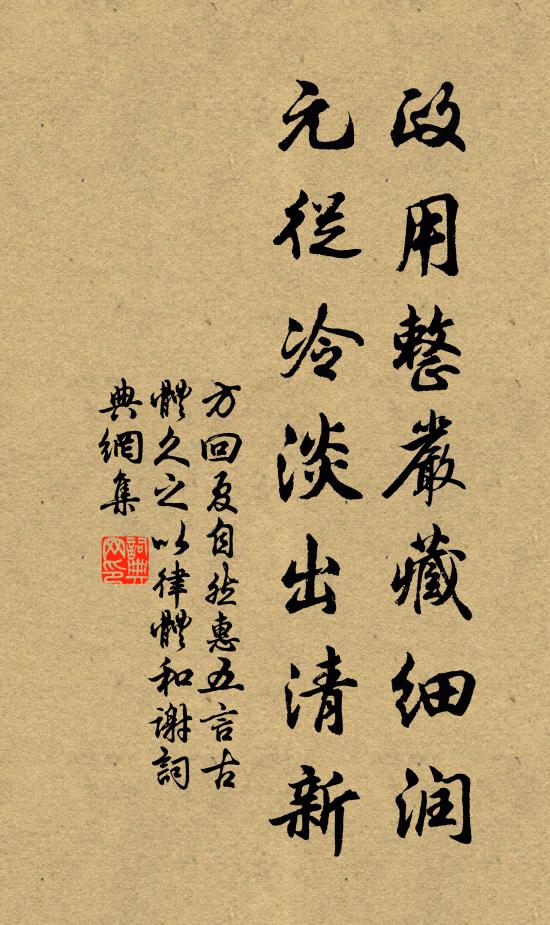 政用整嚴藏細润
元從冷淡出清新
方回夏自然惠五言古
體久之以律體和謝詞
典網集
詞典网印